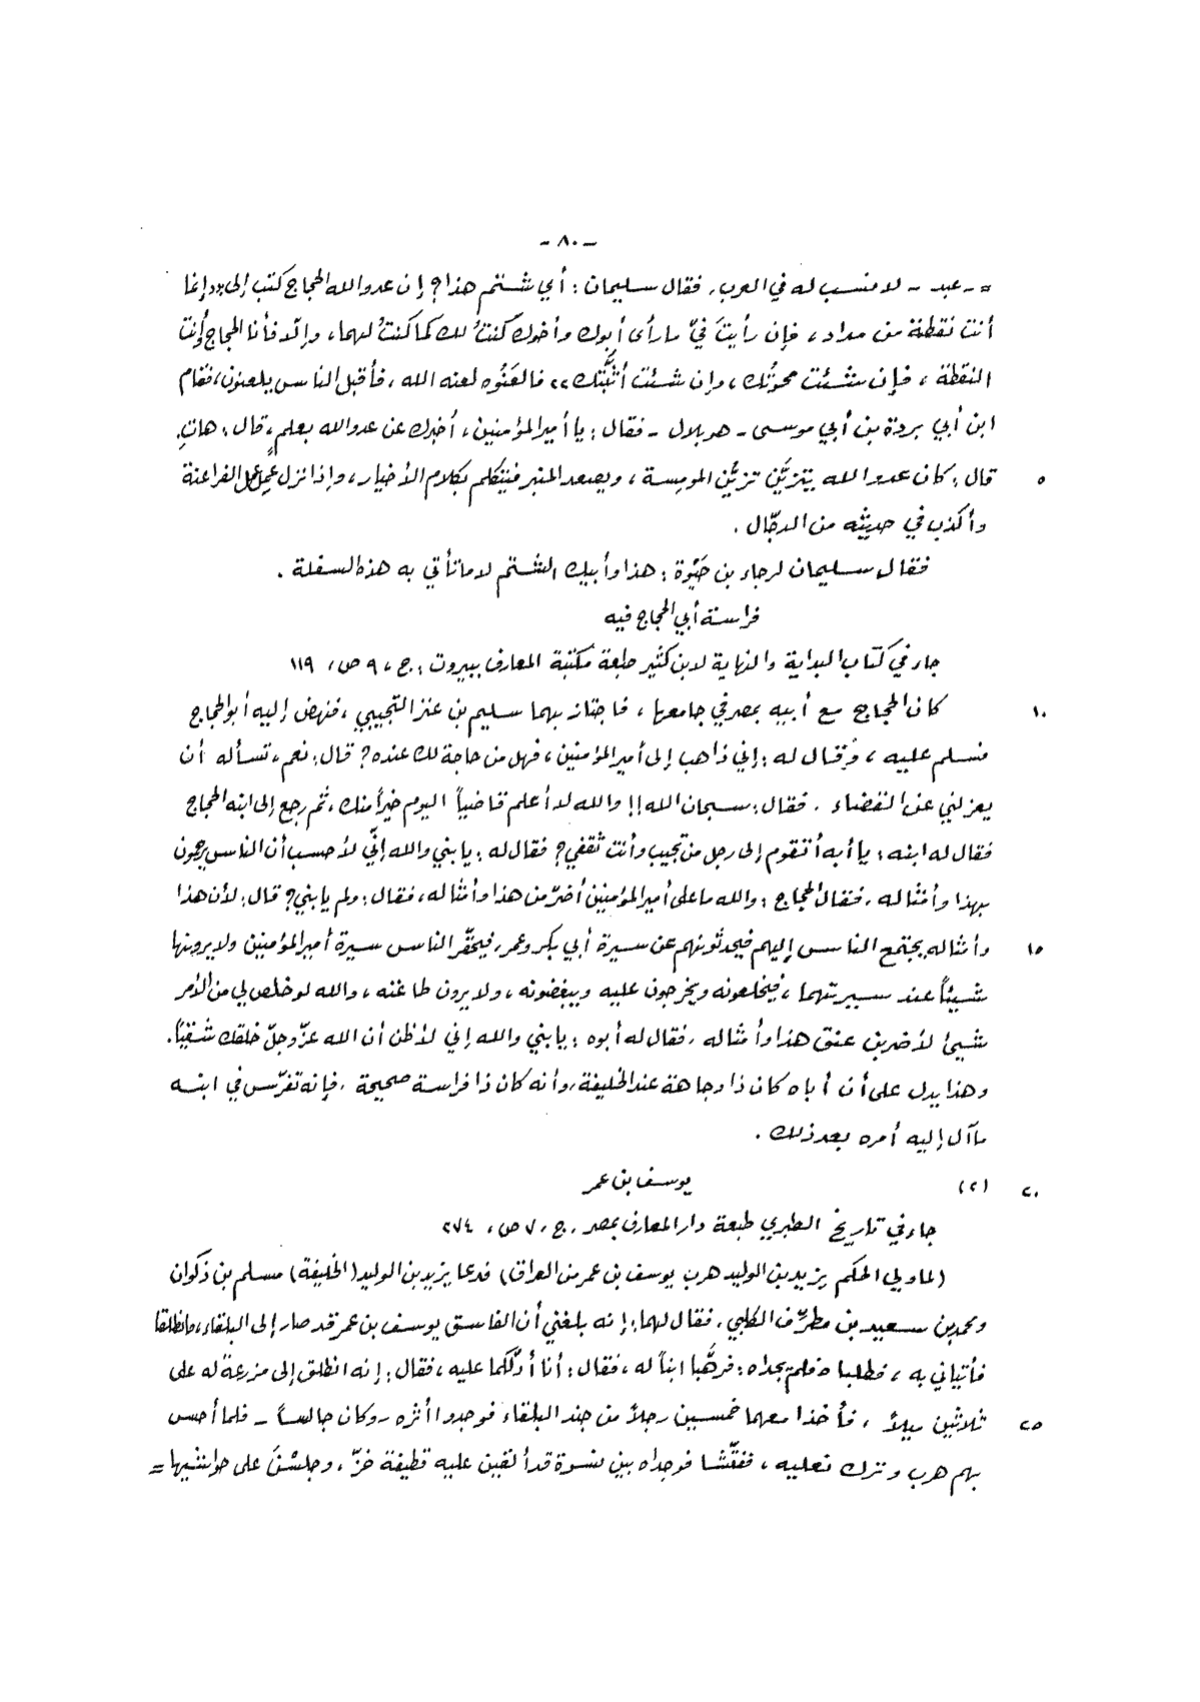 - ٨٠ -
= - عبد - لا منسب له في العرب، فقال سليمان: أي شتم هذا؟ إن عدو الله الحجاج كتب إلي «إنما
أنت نقطة من مداد، فإن رأيتَ فيّ ما رأى أبوك وأخوك كنتُ لك كما كنتُ لهما، وإلّا فأنا الحجاج وأنت
النقطة، فإن شئت محوتُك، وإن شئت أثبَّتك» فالعَنُوه لعنه الله، فأقبل الناس يلعنون، فقام
ابن أبي بردة بن أبي موسى - هو بلال - فقال: يا أمير المؤمنين، أُخبرك عن عدو الله بعلمٍ، قال: هاتِ.
٥ قال: كان عدو الله يتزيَّن تزيُّن المومِسة، ويصعد المنبر فيتكلم بكلام الأخيار، وإذا نزل عَمِل عمل الفراعنة
وأكذب في حديثه من الدجّال.
فقال سليمان لرجاء بن حَيْوة: هذا وأبيك الشتم لا ما تأتي به هذه السفلة.
فراسة أبي الحجاج فيه
جاء في كتاب البداية والنهاية لابن كثير طبعة مكتبة المعارف ببيروت: ج، ٩ ص، ١١٩
١٠ كان الحجاج مع أبيه بمصر في جامعها، فاجتاز بهما سليم بن عنز التجيبي، فنهض إليه أبو الحجاج
فسلم عليه، وقال له: إني ذاهب إلى أمير المؤمنين، فهل من حاجة لك عنده؟ قال: نعم، تسأله أن
يعزلني عن القضاء. فقال: سبحان الله!! والله لا أعلم قاضياً اليوم خيراً منك، ثم رجع إلى ابنه الحجاج
فقال له ابنه: يا أبه أتقوم إلى رجل من تجيب وأنت ثقفي؟ فقال له: يا بني والله إنّي لأحسب أن الناس يرحمون
بهذا وأمثاله. فقال الحجاج: والله ما على أمير المؤمنين أضرّ من هذا وأمثاله، فقال: ولم يا بني؟ قال: لأن هذا
١٥ وأمثاله يجتمع الناس إليهم فيحدثونهم عن سيرة أبي بكر وعمر، فيحقّر الناس سيرة أمير المؤمنين ولا يرونها
شيئاً عند سيرتهما، فيخلعونه ويخرجون عليه ويبغضونه، ولا يرون طاعته، والله لو خلص لي من الأمر
شيئ لأضربن عنق هذا وأمثاله. فقال له أبوه: يا بني والله إني لأظن أن الله عزّ وجلّ خلقك شقيّاً.
وهذا يدل على أن أباه كان ذا وجاهة عند الخليفة، وأنه كان ذا فراسة صحيحة، فإنه تفرّس في ابنه
ما آل إليه أمره بعد ذلك.
٢٠ (٢) يوسف بن عمر
جاء في تاريخ الطبري طبعة دار المعارف بمصر، ج، ٧ ص، ٢٧٤
(لما ولي الحكم يزيد بن الوليد هرب يوسف بن عمر من العراق) فدعا يزيد بن الوليد (الخليفة) مسلم بن ذكوان
ومحمد بن سعيد بن مطرِّف الكلبي، فقال لهما: إنه بلغني أن الفاسق يوسف بن عمر قد صار إلى البلقاء، فانطلقا
فأتياني به، فطلباه فلم يجداه: فرهَّبا ابناً له، فقال: أنا أدلّكما عليه، فقال: إنه انطلق إلى مزرعةٍ له على
٢٥ ثلاثين ميلاً، فأخذا معهما خمسين رجلاً من جند البلقاء فوجدوا أثره - وكان جالساً - فلما أحس
بهم هرب وترك نعليه، ففتّشا فوجداه بين نسوة قد ألقين عليه قطيفة خزّ، وجلسْنَ على حواشيها =